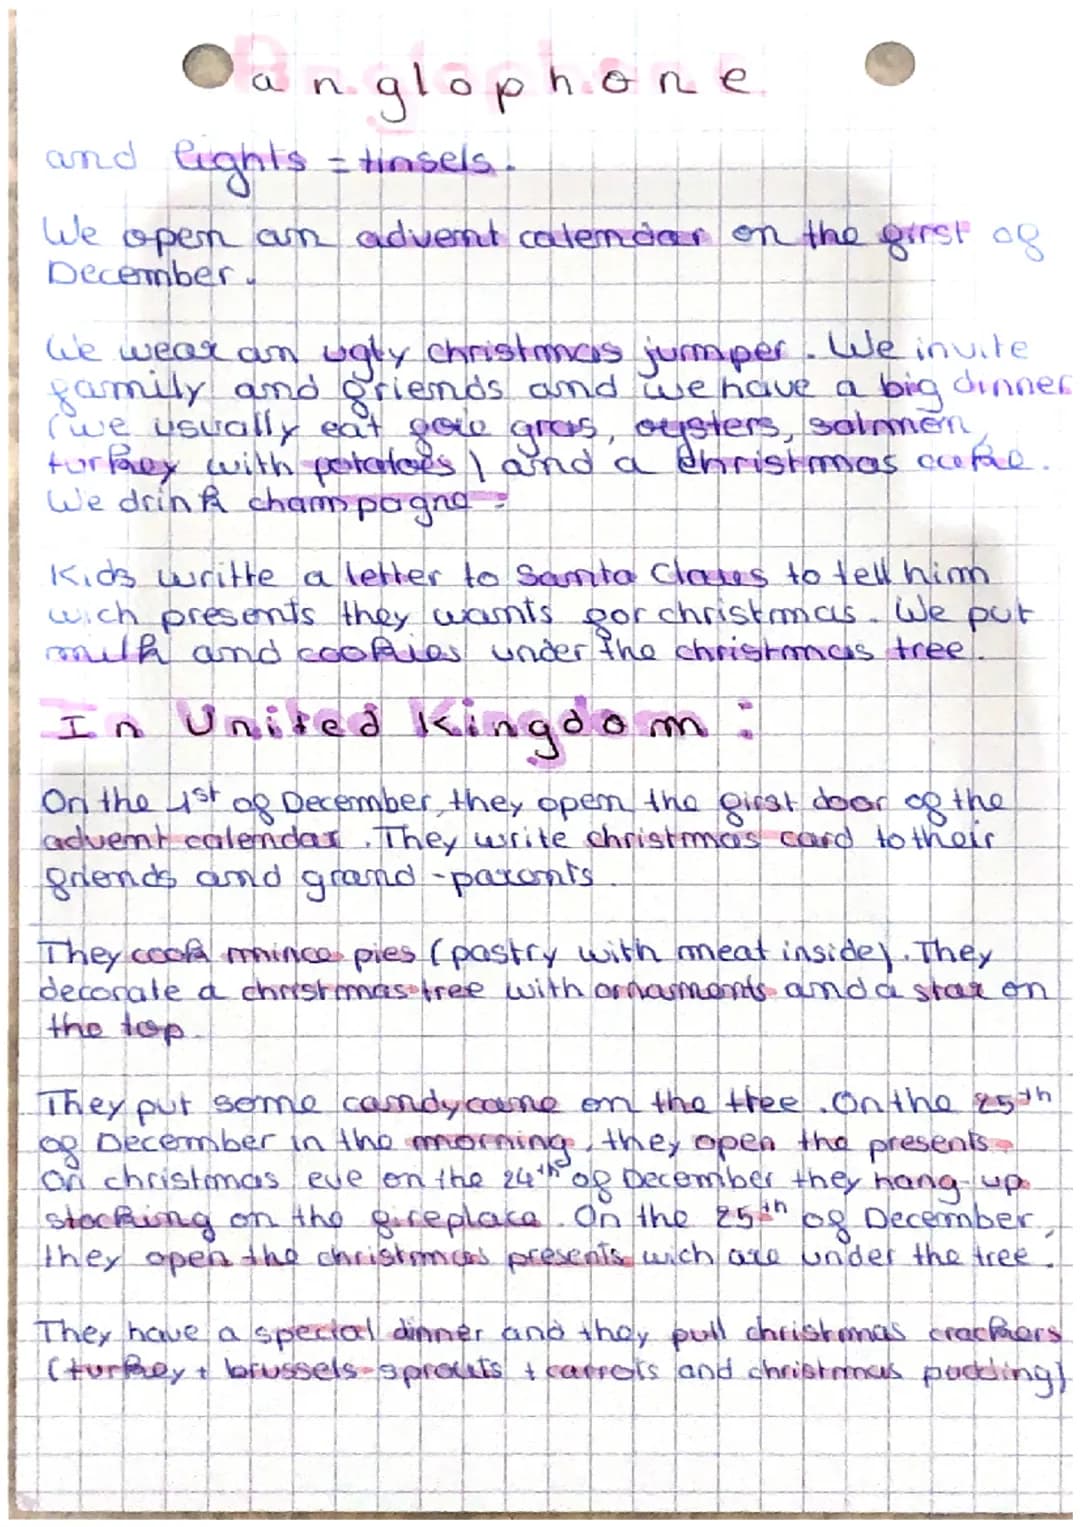 anglophone
and lights = tinsels.
We open an advent calendar on the first of
December.
We wear an ugly christmas jumper. We invite
family and friends and we have a big dinner
(we usually eat foie gras, oysters, salmon,
turkey with potatoes) and a christmas cake.
We drink champagne.
Kids writte a letter to Santa Claus to tell him
wich presents they wants for christmas. We put
milk and cookies under the christmas tree.
In United Kingdom :
On the 1st of December, they open the first door of the
advent calendar. They write christmas card to their
friends and grand-parents.
They cook mince pies (pastry with meat inside). They
decorate a christmas tree with ornaments and a star on
the top.
They put some candycane on the tree. On the 25th
of December in the morning, they open the presents.
On christmas eve on the 24th of December they hang-up
stocking on the fireplace. On the 25th of December,
they open the christmas presents wich are under the tree.
They have a special dinner and they pull christmas crackers
(turkey + brussels-sprouts + carrots and christmas pudding)